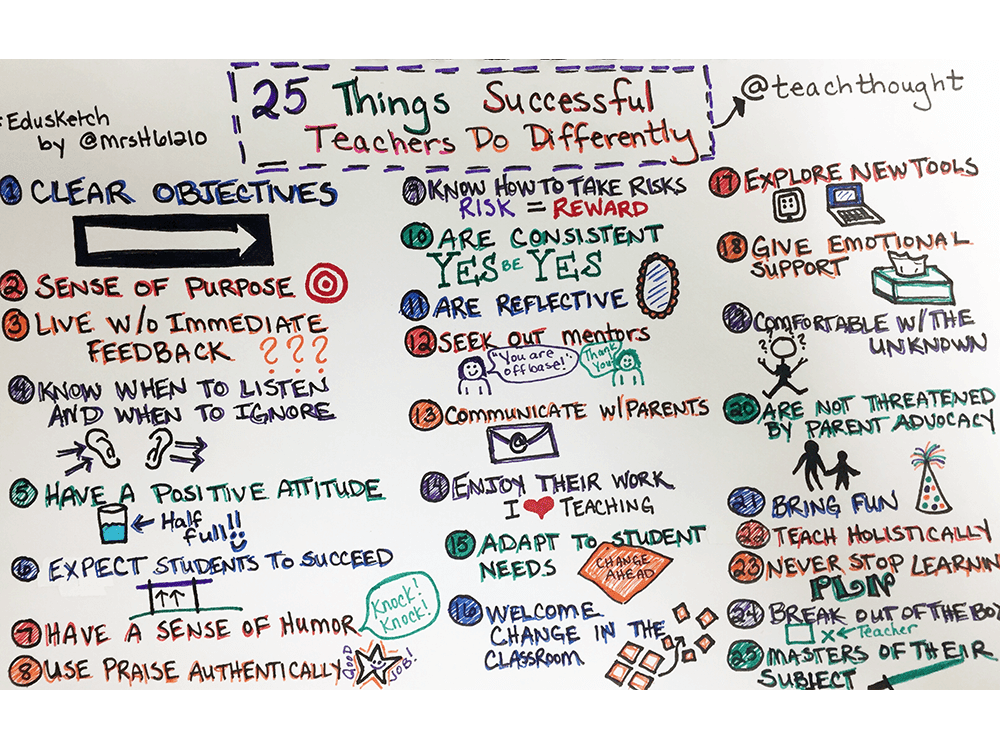 25 Things Successful
Teachers Do Differently
@teachthought
EduSketch
by @mrsH61210
1 CLEAR OBJECTIVES
2 SENSE OF PURPOSE
3 LIVE W/O IMMEDIATE
FEEDBACK ???
4 KNOW WHEN TO LISTEN
AND WHEN TO IGNORE
5 HAVE A POSITIVE ATTITUDE
Half
full!!
6 EXPECT STUDENTS TO SUCCEED
7 HAVE A SENSE OF HUMOR
Knock!
Knock!
8 USE PRAISE AUTHENTICALLY
GOOD JOB!
9 KNOW HOW TO TAKE RISKS
RISK = REWARD
10 ARE CONSISTENT
YES BE YES
11 ARE REFLECTIVE
12 SEEK OUT mentors
"You are
off base!"
Thank
You!
13 COMMUNICATE W/PARENTS
@
14 ENJOY THEIR WORK
I ❤ TEACHING
15 ADAPT TO STUDENT
NEEDS
CHANGE
AHEAD
16 WELCOME
CHANGE IN THE
CLASSROOM
17 EXPLORE NEW TOOLS
18 GIVE EMOTIONAL
SUPPORT
19 COMFORTABLE W/THE
UNKNOWN
? ? ? ?
20 ARE NOT THREATENED
BY PARENT ADVOCACY
21 BRING FUN
22 TEACH HOLISTICALLY
23 NEVER STOP LEARNIN
PLN
24 BREAK OUT OF THE BO
X ← Teacher
25 MASTERS OF THEIR
SUBJECT